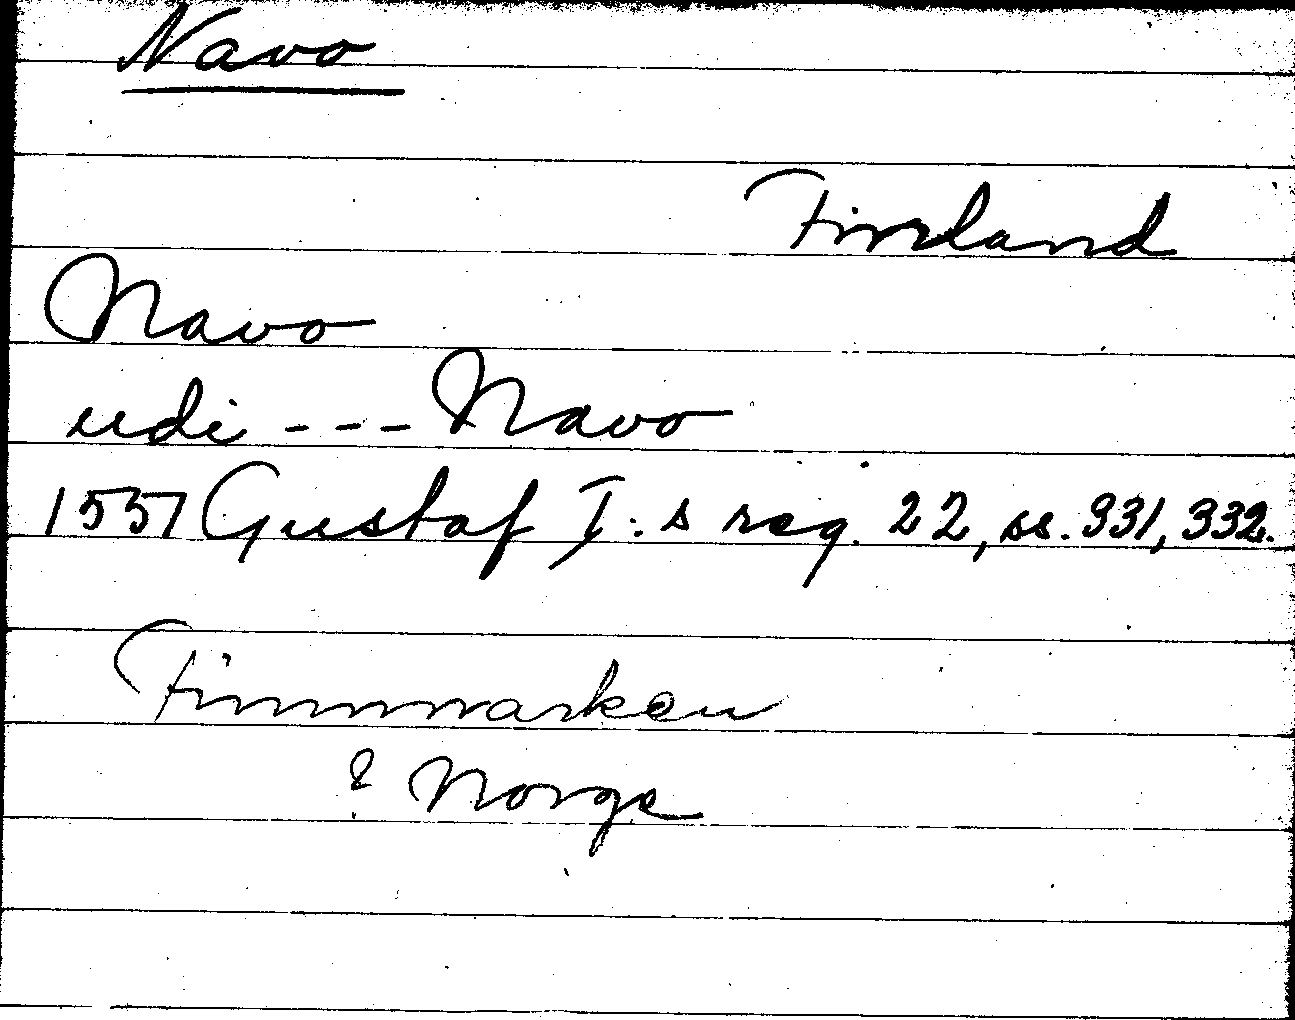 Navo
Finland
Navo
udi --- Navo
1557 Gustaf I:s reg. 22, ss. 331, 332.
Finnmarken
? Norge